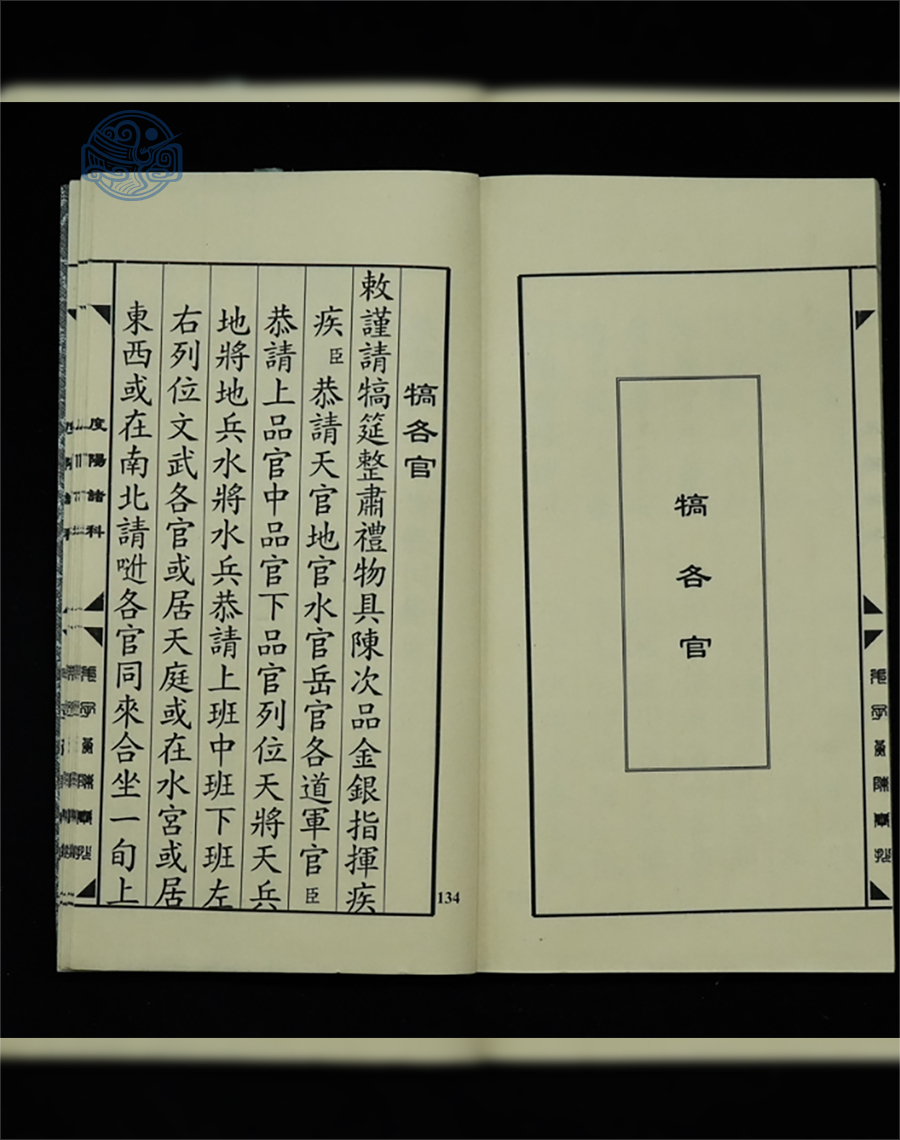 犒各官
犒各官
敕謹請犒筵整肅禮物具陳次品金銀指揮疾
疾臣恭請天官地官水官岳官各道軍官臣
恭請上品官中品官下品官列位天將天兵
地將地兵水將水兵恭請上班中班下班左
右列位文武各官或居天庭或在水宮或居
東西或在南北請𠱀各官同來合坐一旬上
度陽諸科
134